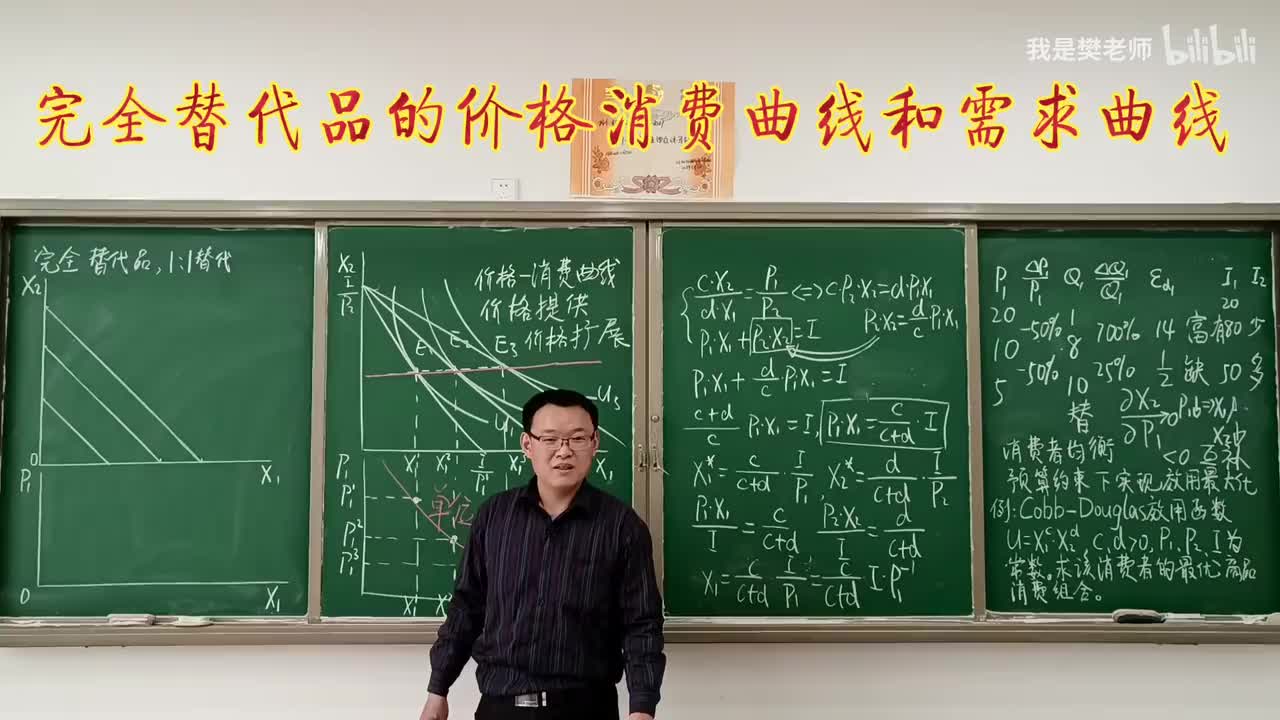 我是樊老师 bilibili
完全替代品的价格消费曲线和需求曲线
完全替代品,1:1替代
X₂
0
P₁
X₁
0
X₁
X₂
I/P₂
价格-消费曲线
价格提供
价格扩展
E₁ E₂ E₃
U₃
X₁
P₁
P₁¹
P₁²
P₁³
单位
c·X₂/d·X₁=P₁/P₂⇔c·P₂·X₂=d·P₁X₁
P₁X₁+P₂·X₂=I
P₂·X₂=d/c P₁·X₁
P₁·X₁+d/c·P₁X₁=I
c+d/c P₁·X₁=I, P₁·X₁=c/c+d·I
X₁*=c/c+d·I/P₁, X₂*=d/c+d·I/P₂
P₁·X₁/I=c/c+d P₂·X₂/I=d/c+d
X₁=c/c+d I/P₁=c/c+d I·P₁⁻¹
P₁ ΔP₁/P₁ Q₁ ΔQ₁/Q₁ Ed₁ I₁ I₂
20 1 20
-50% 700% 14 富有 80 少
10 8
-50% 25% 1/2 缺 50 多
5 10
替 ∂X₂/∂P₁>0
<0 互补
消费者均衡
预算约束下实现效用最大化
例:Cobb-Douglas效用函数
U=X₁ᶜX₂ᵈ c,d>0, P₁,P₂,I为
常数。求该消费者的最优商品
消费组合。